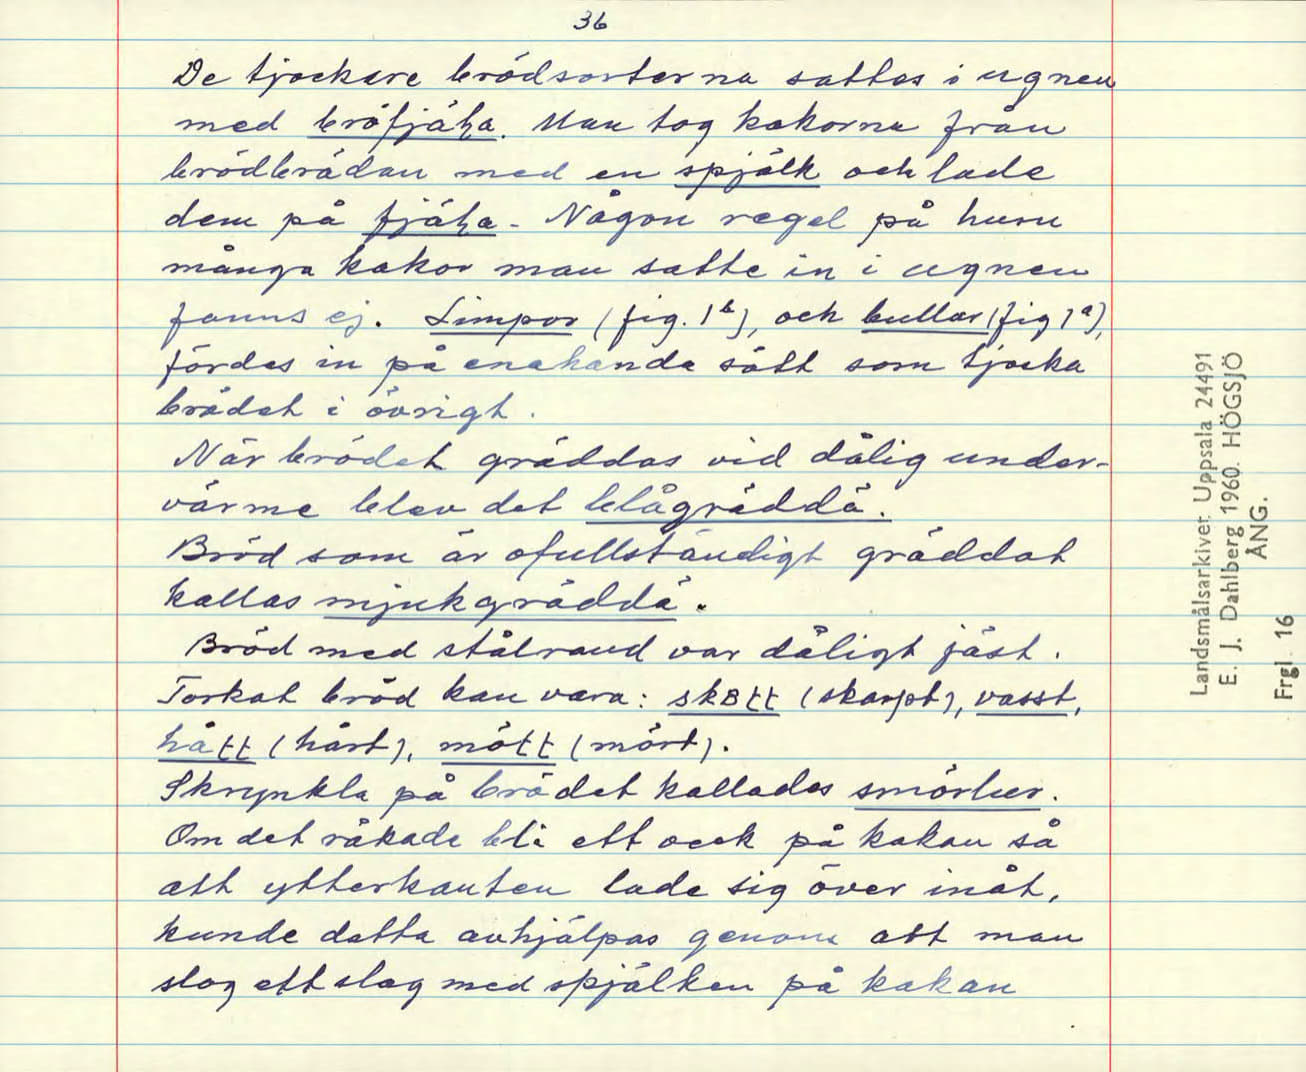 36
De tjockare brödsorterna sattes i ugnen
med bröfjäḥa. Man tog kakorna från
brödbrädan med en spjälk och lade
dem på fjäḥa - Någon regel på huru
många kakor man satte in i ugnen
fanns ej. Limpor (fig. 1b), och bullar (fig 1a),
fördes in på enahanda sätt som tjocka
brödet i övrigt.
När brödet gräddas vid dålig under-
värme blev det blågräddä.
Bröd som är ofullständigt gräddat
kallas mjukgräddä.
Bröd med stålrand var dåligt jäst.
Torkat bröd kan vara: skBtt (skarpt), vasst,
hått (hårt), mött (mört).
Skrynkla på brödet kallades
Om det råkade bli ett veck på kakan så
att ytterkanten lade sig över inåt,
kunde detta avhjälpas genom att man
slog ett slag med spjälken på kakan
Landsmålsarkivet Uppsala 24491
E. J. Dahlberg 1960. HÖGSJÖ
ÅNG.
Frgl. 16